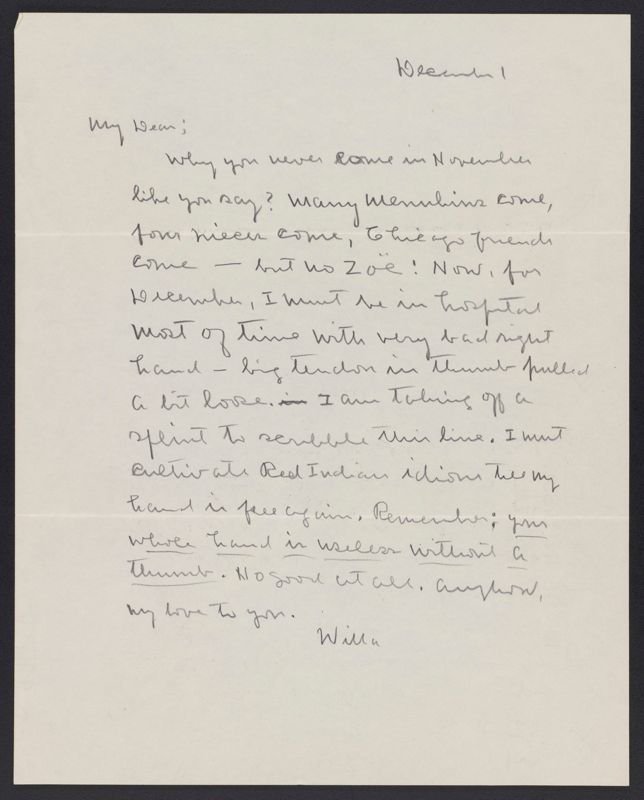 December 1
My Dear;
Why you never come in November
like you say? Many Menuhins come,
four nieces come, Chicago friends
come — but no Zoë! Now, for
December, I must be in hospital
most of time with very bad right
hand — big tendon in thumb pulled
a bit loose. in I am taking off a
splint to scribble this line. I must
cultivate Red Indian idiom till my
hand is free again. Remember; your
whole hand is useless without a
thumb. No good at all. Anyhow,
my love to you.
Willa